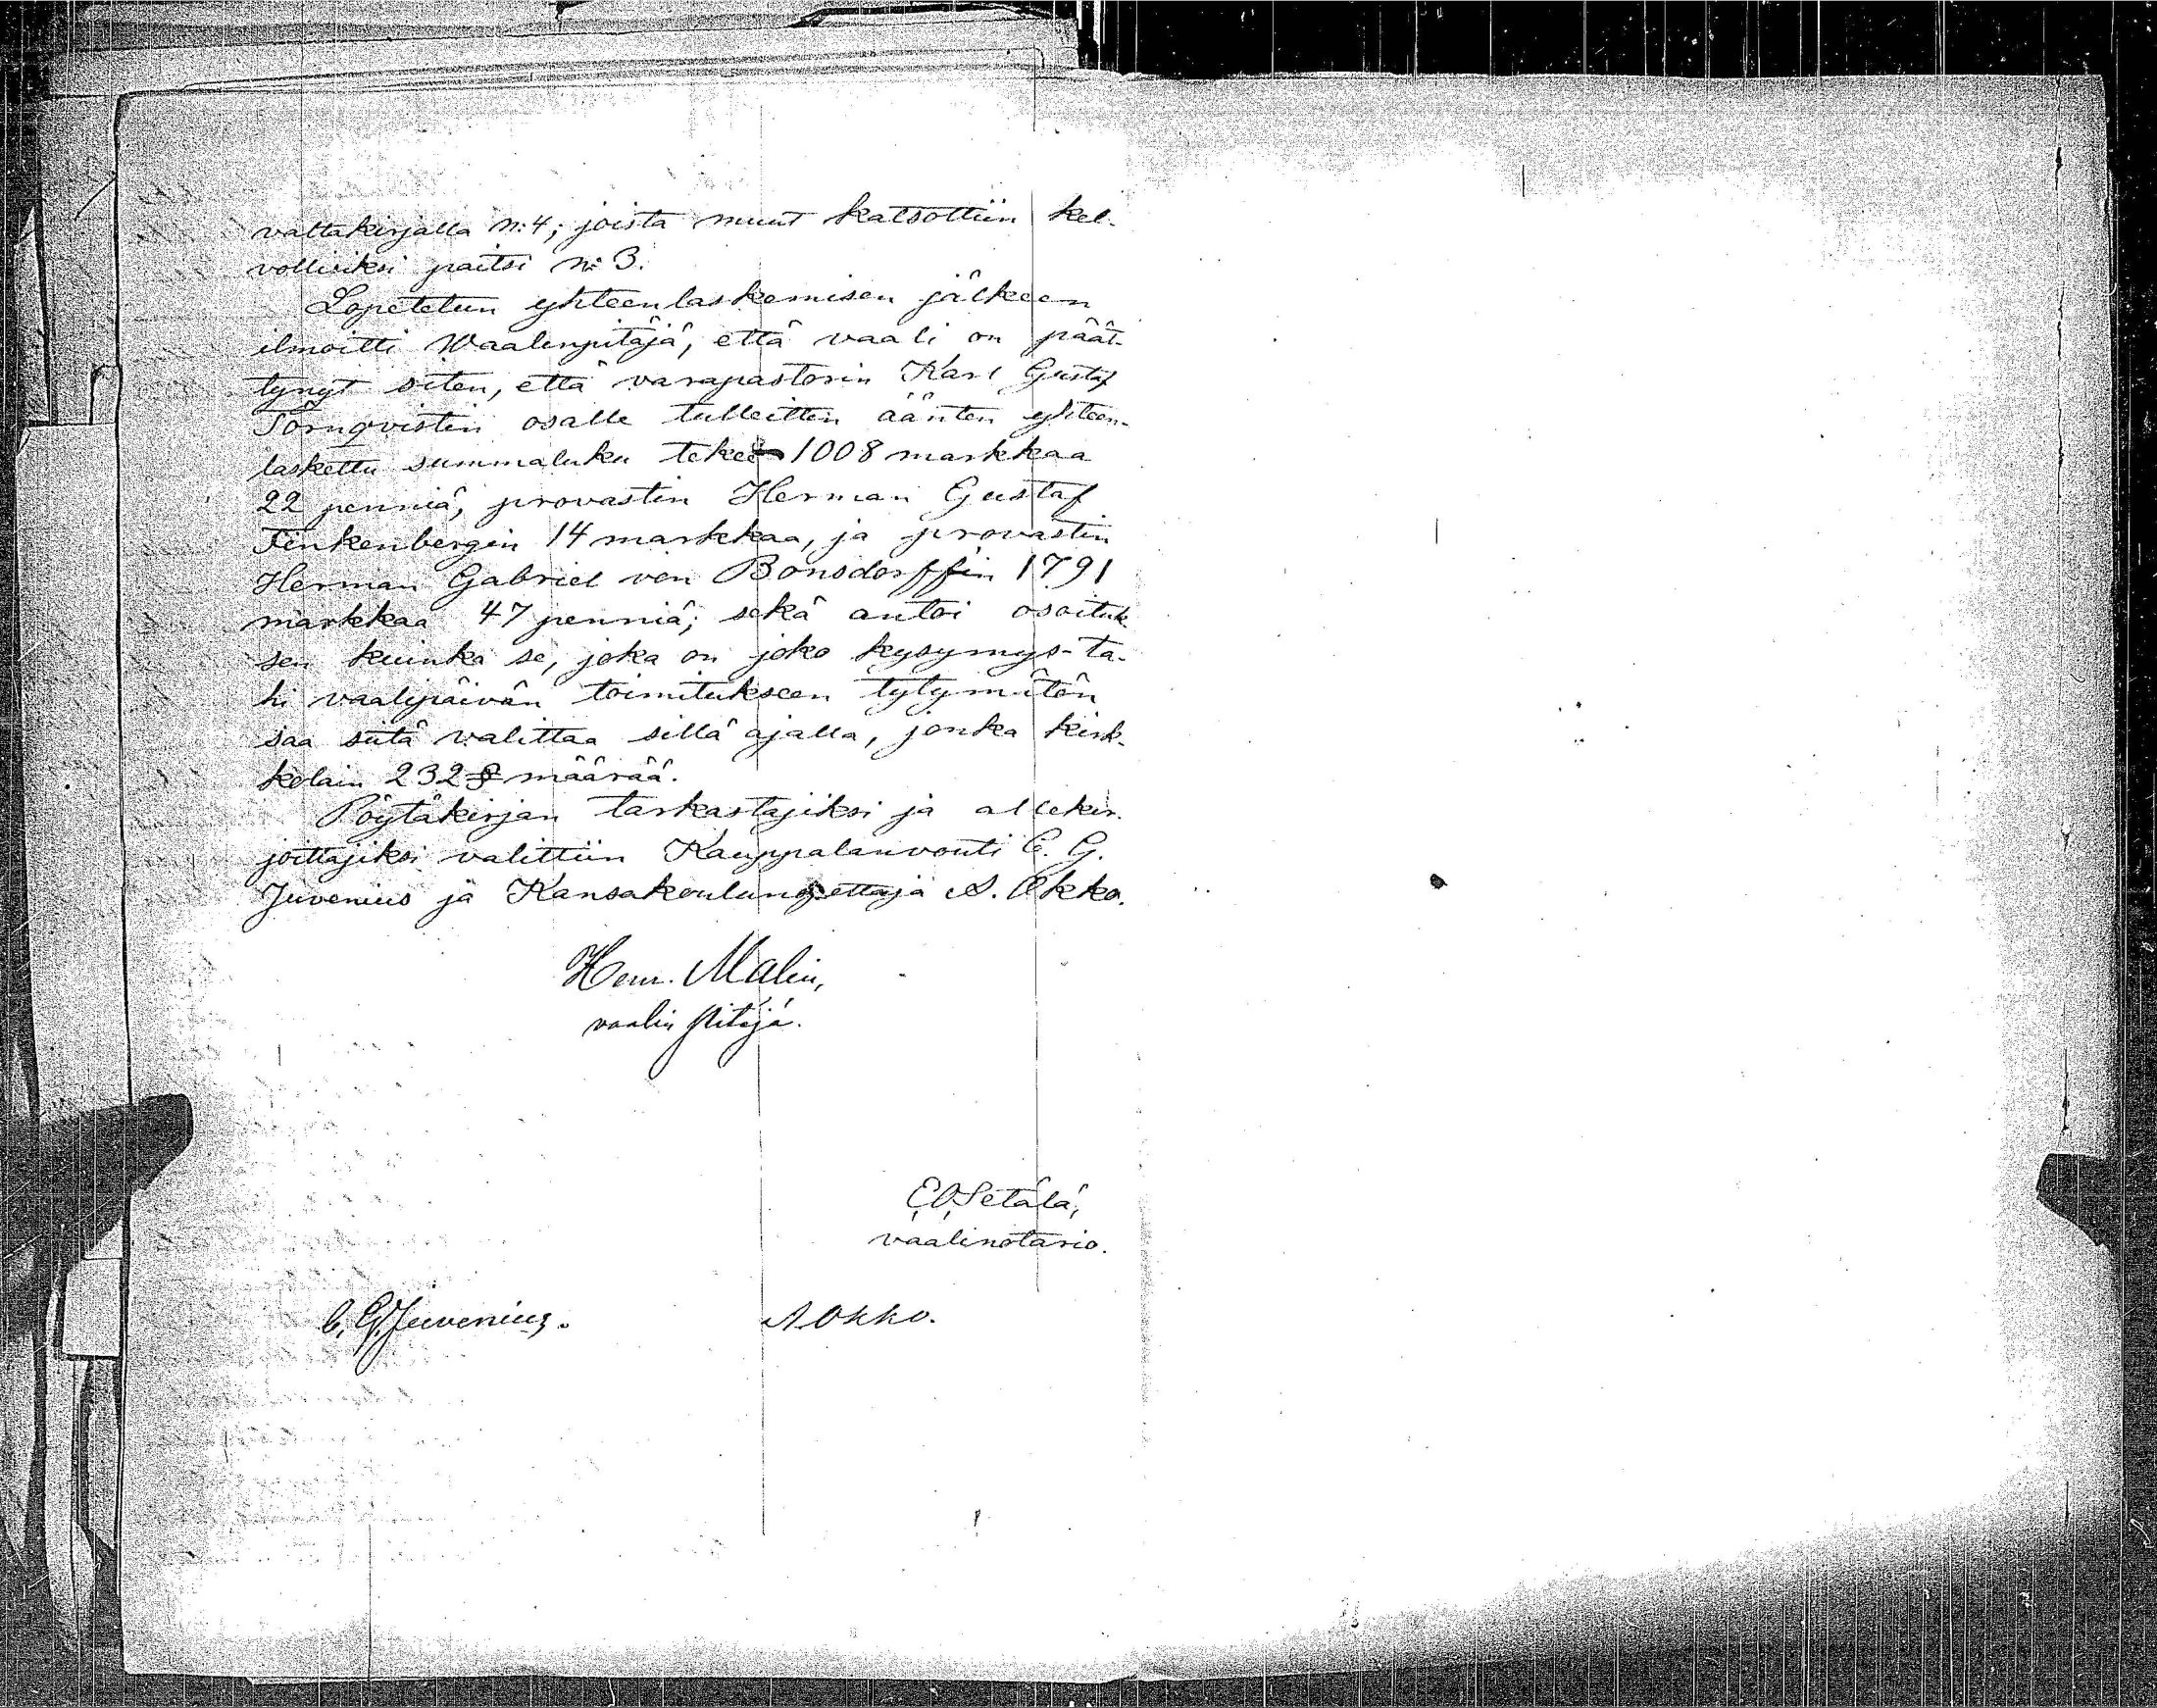 valtakirjalla N:4; joista muut katsottiin kel-
vollisiksi paitsi N:3.
Lopetetun yhteenlaskemisen jälkeen
ilmoitti Waalinpitäjä, että vaali on päät-
tynyt siten, että varapastorin Karl Gustaf
Törnqvistin osalle tulleitten äänten yhteen-
laskettu summaluku tekee 1008 markkaa
22 penniä, provastin Herman Gustaf
Finkenbergin 14 markkaa, ja provastin
Herman Gabriel von Bonsdorffin 1791
markkaa 47 penniä; sekä antoi osoituk-
sen kuinka se, joka on joko kysymys- ta-
hi vaalipäivän toimitukseen tytymätön
saa siitä valittaa sillä ajalla, jonka kirk-
kolain 232 § määrää.
Pöytäkirjan tarkastajiksi ja allekir-
joittajiksi valittiin Kauppalanvouti C. G.
Juvenius ja Kansakoulunopettaja A. Okko.
Henr. Malin,
vaalin pitäjä.
E. O. Setälä,
vaalinotario.
C. G. Juvenius. A. Okko.